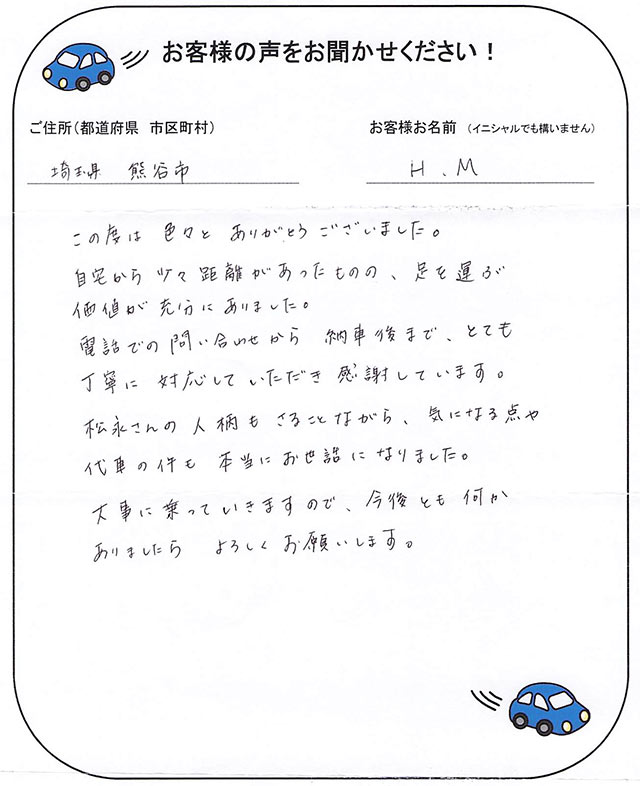 お客様の声をお聞かせください！
ご住所（都道府県　市区町村）
お客様お名前　（イニシャルでも構いません）
埼玉県　熊谷市
H．M
この度は 色々と ありがとうございました。
自宅から 少々距離があったものの、足を運ぶ
価値が 充分にありました。
電話での問い合わせから 納車後まで、とても
丁寧に 対応していただき 感謝しています。
松永さんの人柄もさることながら、気になる点や
代車の件も 本当にお世話になりました。
大事に乗っていきますので、今後とも何か
ありましたら よろしくお願いします。